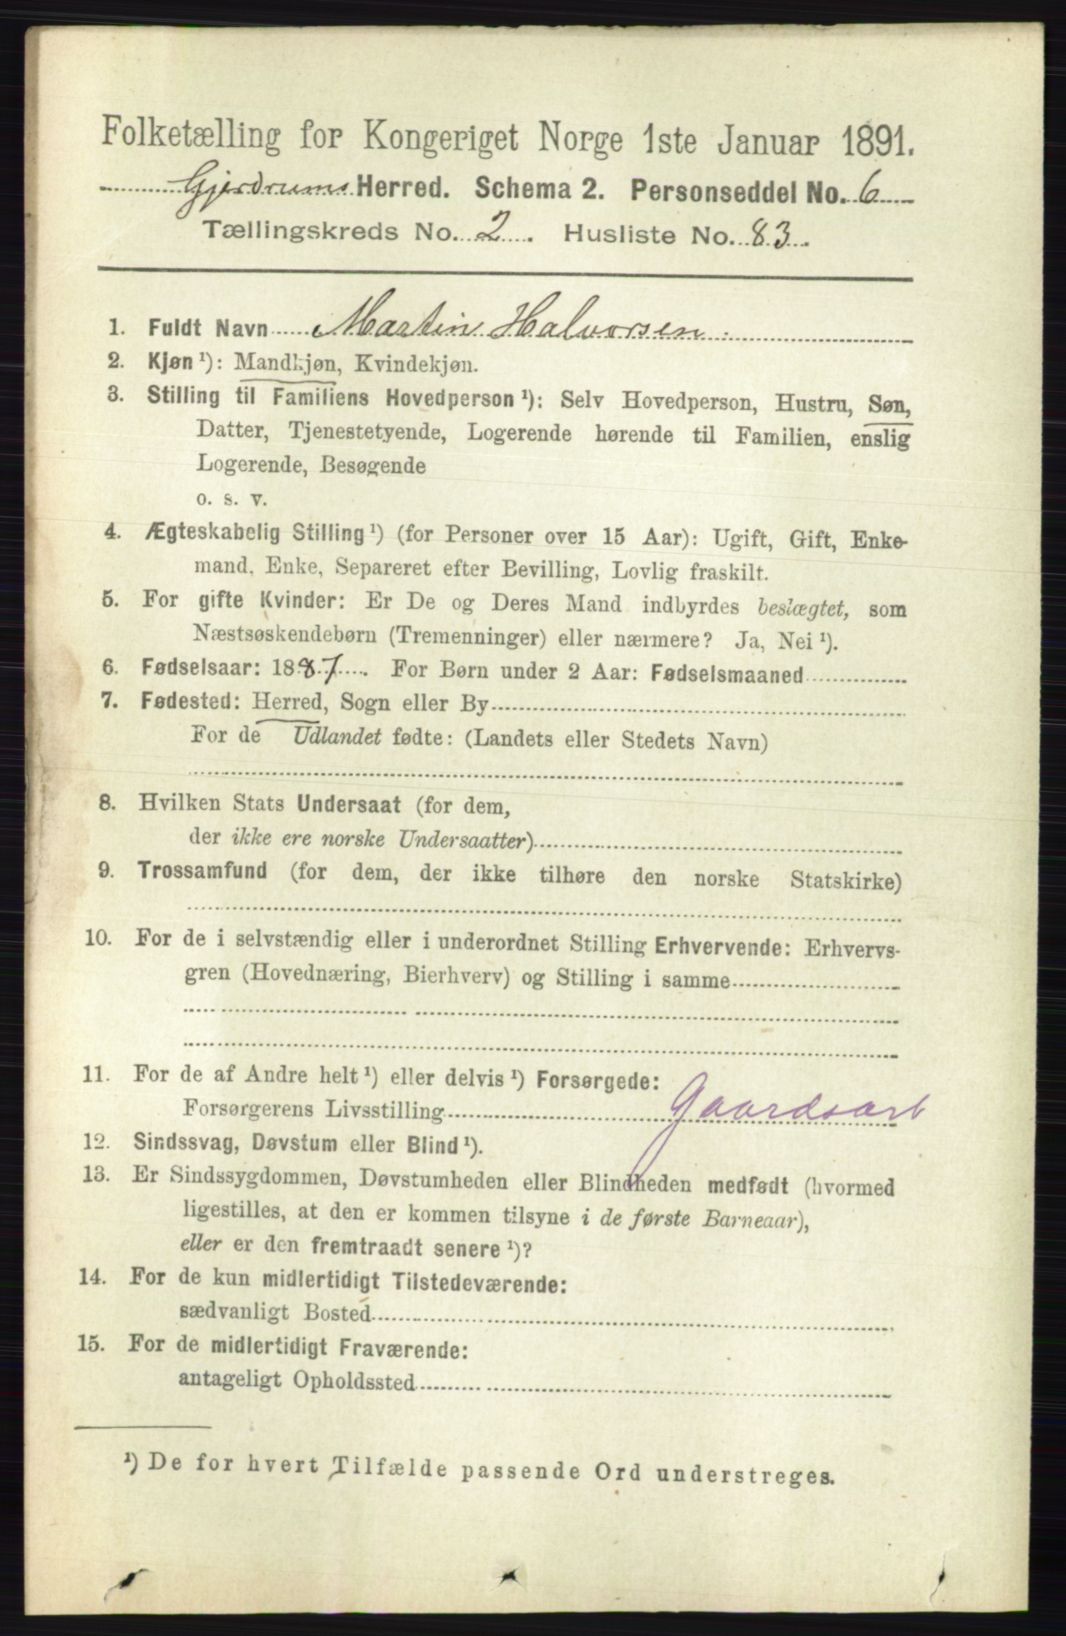 Folketælling for Kongeriget Norge 1ste Januar 1891.
Gjerdrums Herred. Schema 2. Personseddel No. 6
Tællingskreds No. 2. Husliste No. 83.
1. Fuldt Navn Martin Halvorsen.
2. Kjøn ¹): Mandkjøn, Kvindekjøn.
3. Stilling til Familiens Hovedperson ¹): Selv Hovedperson, Hustru, Søn,
Datter, Tjenestetyende, Logerende hørende til Familien, enslig
Logerende, Besøgende
o. s. v.
4. Ægteskabelig Stilling ¹) (for Personer over 15 Aar): Ugift, Gift, Enke-
mand, Enke, Separeret efter Bevilling, Lovlig fraskilt.
5. For gifte Kvinder: Er De og Deres Mand indbyrdes beslægtet, som
Næstsøskendebørn (Tremenninger) eller nærmere? Ja, Nei ¹).
6. Fødselsaar: 1887. For Børn under 2 Aar: Fødselsmaaned
7. Fødested: Herred, Sogn eller By
For de Udlandet fødte: (Landets eller Stedets Navn)
8. Hvilken Stats Undersaat (for dem,
der ikke ere norske Undersaatter)
9. Trossamfund (for dem, der ikke tilhøre den norske Statskirke)
10. For de i selvstændig eller i underordnet Stilling Erhvervende: Erhvervs-
gren (Hovednæring, Bierhverv) og Stilling i samme
11. For de af Andre helt ¹) eller delvis ¹) Forsørgede:
Forsørgerens Livsstilling Gaardsarb
12. Sindssvag, Døvstum eller Blind ¹).
13. Er Sindssygdommen, Døvstumheden eller Blindheden medfødt (hvormed
ligestilles, at den er kommen tilsyne i de første Barneaar),
eller er den fremtraadt senere ¹)?
14. For de kun midlertidigt Tilstedeværende:
sædvanligt Bosted
15. For de midlertidigt Fraværende:
antageligt Opholdssted
¹) De for hvert Tilfælde passende Ord understreges.